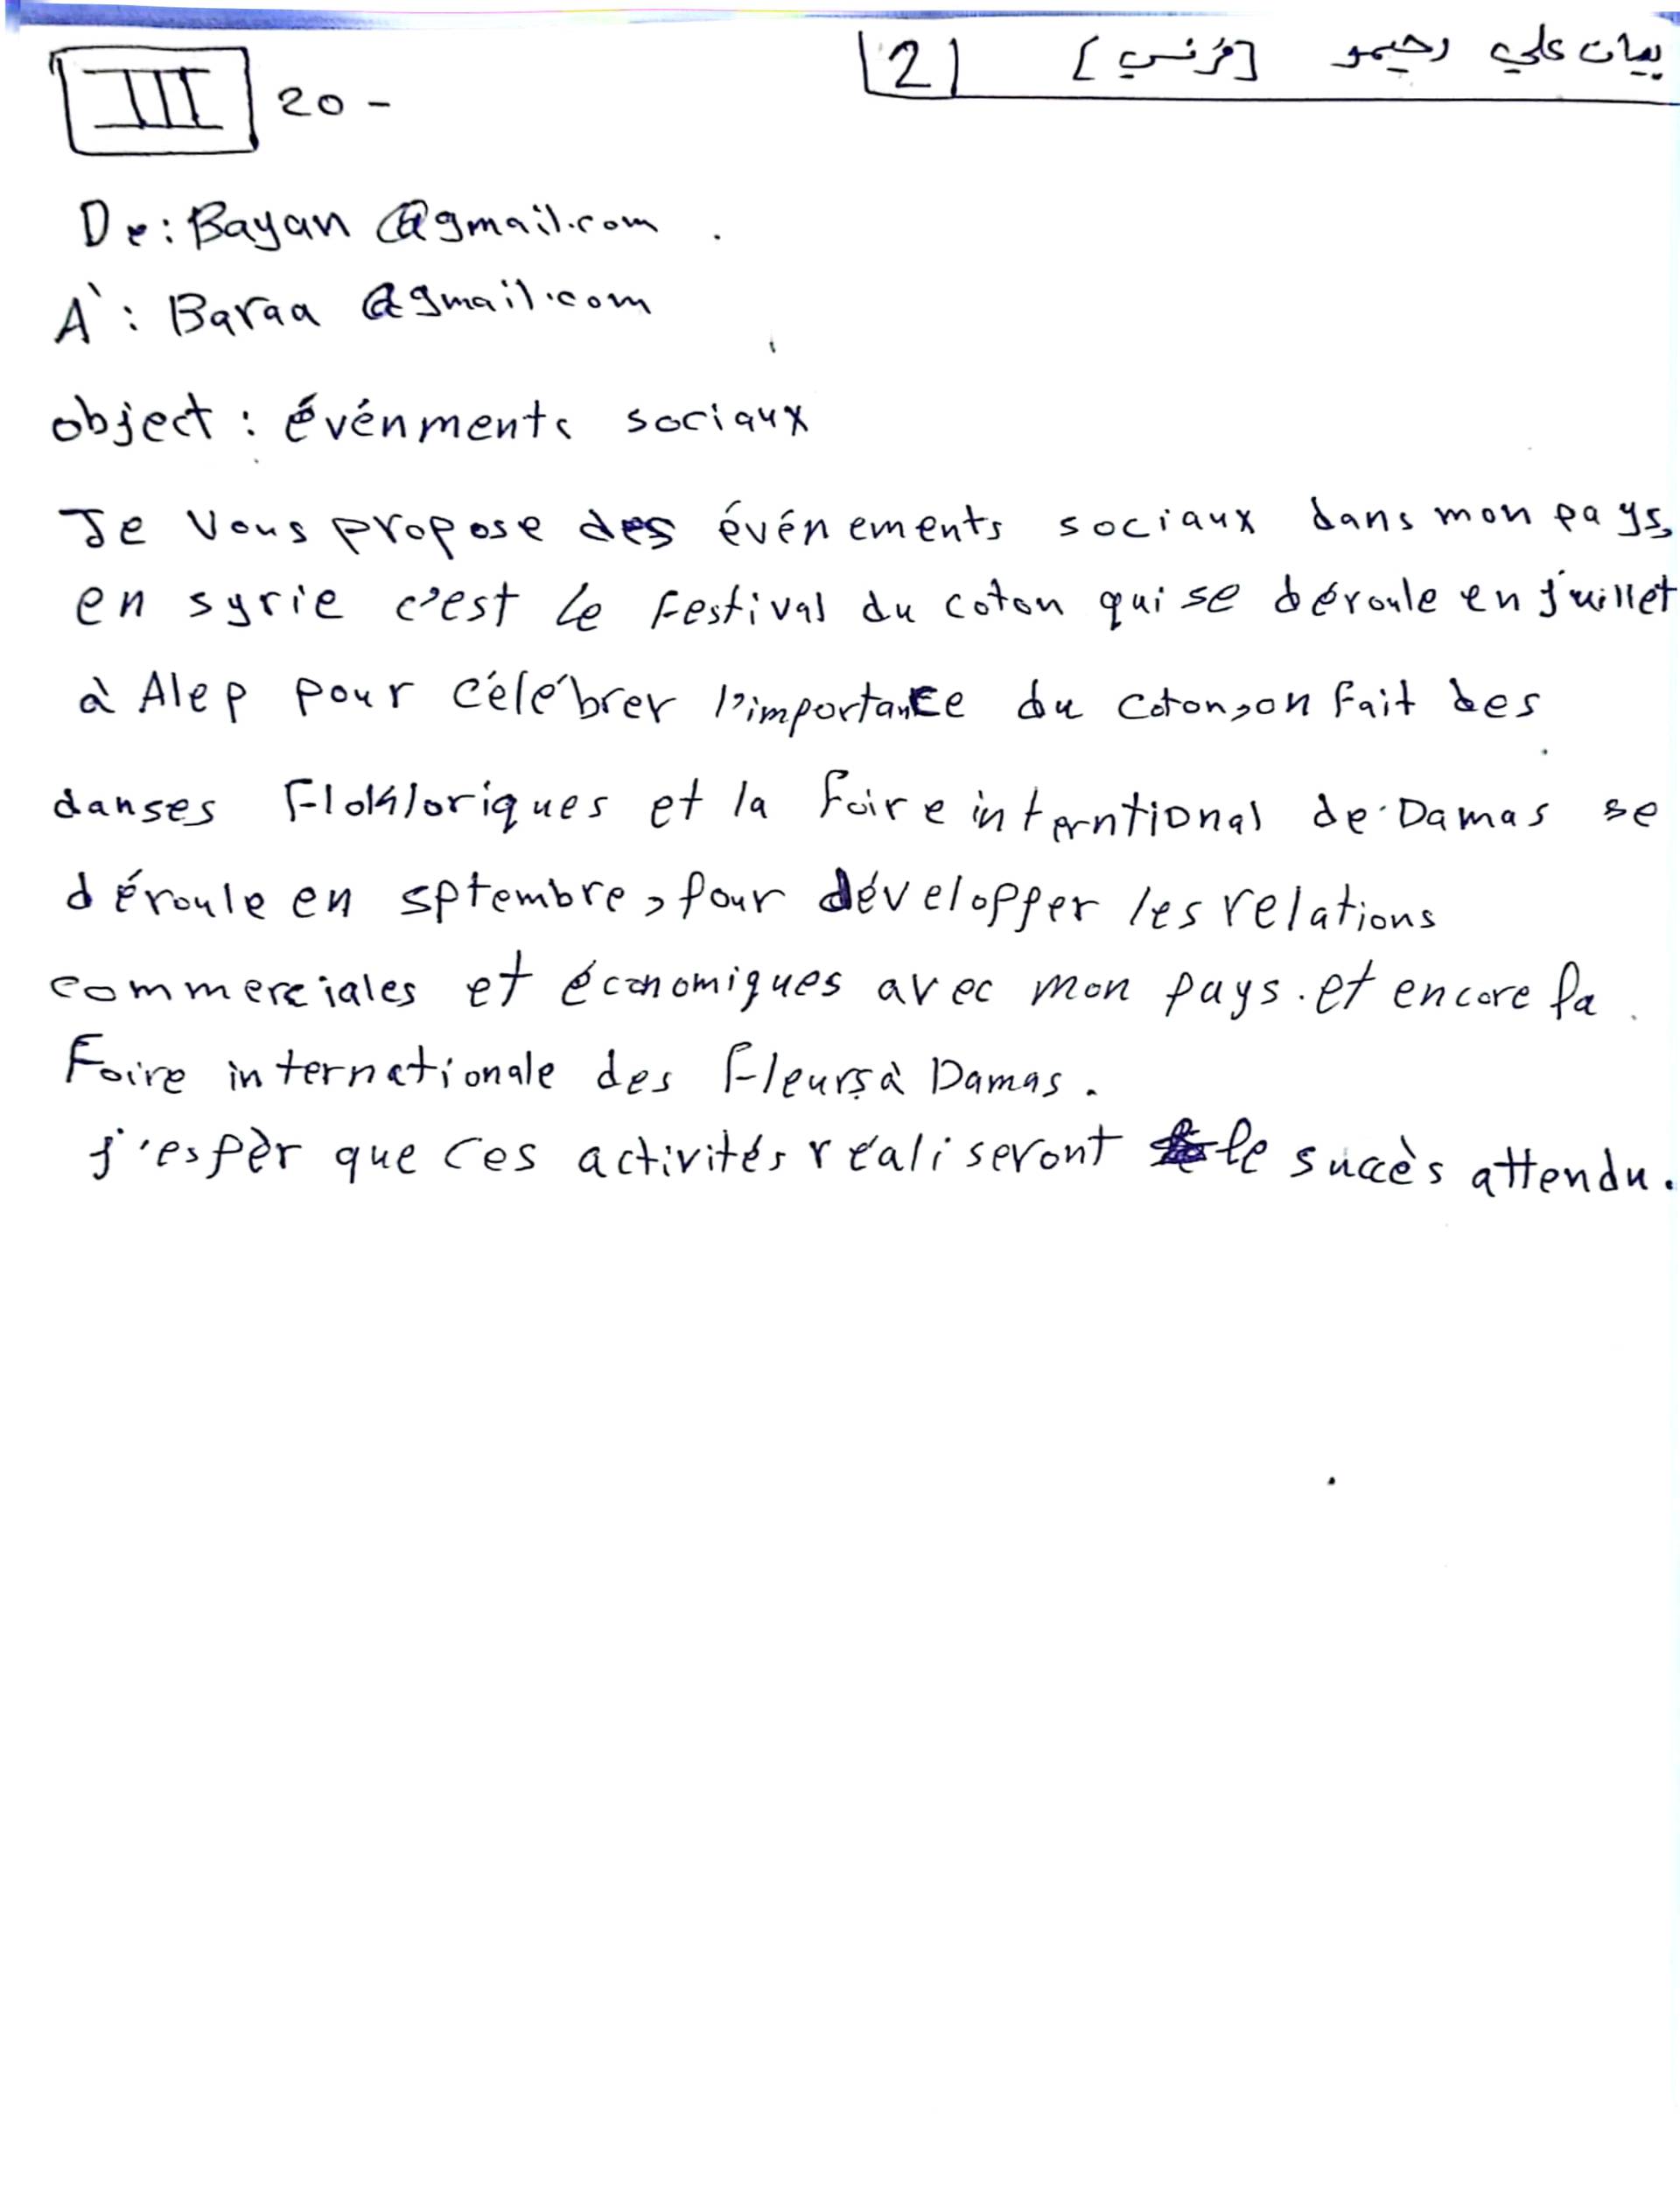 بيان علي رحيمو [فرنسي] 2
III 20 -
De: Bayan @gmail.com
À: Baraa @gmail.com
object : événments sociaux
Je vous propose des événements sociaux dans mon pays,
en syrie c'est le Festival du coton qui se déroule en juillet
à Alep pour célébrer l'importance du coton, on fait des
danses Floklloriques et la foire interntional de Damas se
déroule en sptembre, pour développer les relations
commerciales et économiques avec mon pays. et encore la
Foire internationale des fleurs à Damas.
j'espèr que ces activités réaliseront le succès attendu.